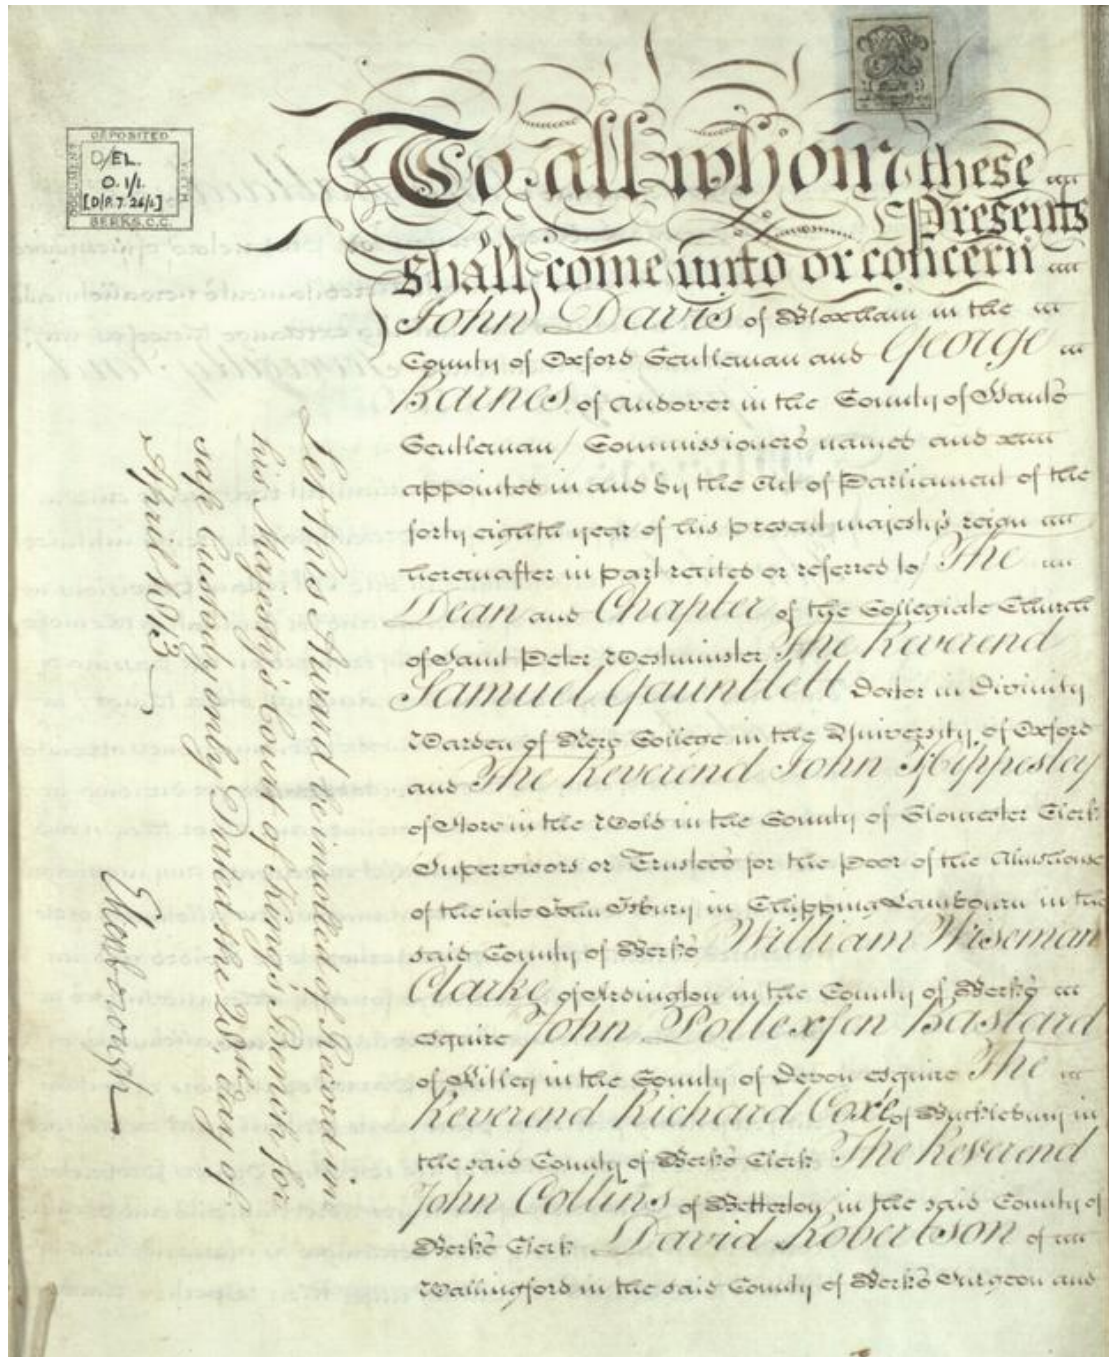 DEPOSITED
DOCUMENT
D/EL.
O. 1/1.
[D/P.7. 26/1]
BERKS.C.C.
To all whom these
Presents
shall come unto or concern
John Davis of Bloxham in the
County of Oxford Gentleman and George
Barnes of Andover in the County of Hants
Gentleman / Commissioners named and
appointed in and by the Act of Parliament of the
forty eighth year of his present majesty's reign
hereinafter in part recited or referred to / The
Dean and Chapter of the Collegiate Church
of Saint Peter Westminster The Reverend
Samuel Gauntlett Doctor in Divinity
Warden of New College in the University of Oxford
and The Reverend John Hippesley
of Stow in the Wold in the County of Glocester Clerk
Supervisors or Trustees for the Poor of the Almshouse
of the late John Isbury in Chipping Lambourn in the
said County of Berks William Wiseman
Clarke of Ardington in the County of Berks
esquire John Pollexfen Bastard
of Kitley in the County of Devon esquire The
Reverend Richard Coxe of Bucklebury in
the said County of Berks Clerk The Reverend
John Collins of Betterton in the said County of
Berks Clerk David Robertson of
Wallingford in the said County of Berks Surgeon and
Let this Award be inrolled of Record in
his Majesty's Court of King's Bench for
safe Custody only Dated the 28th day of
April 1813
Ellenborough